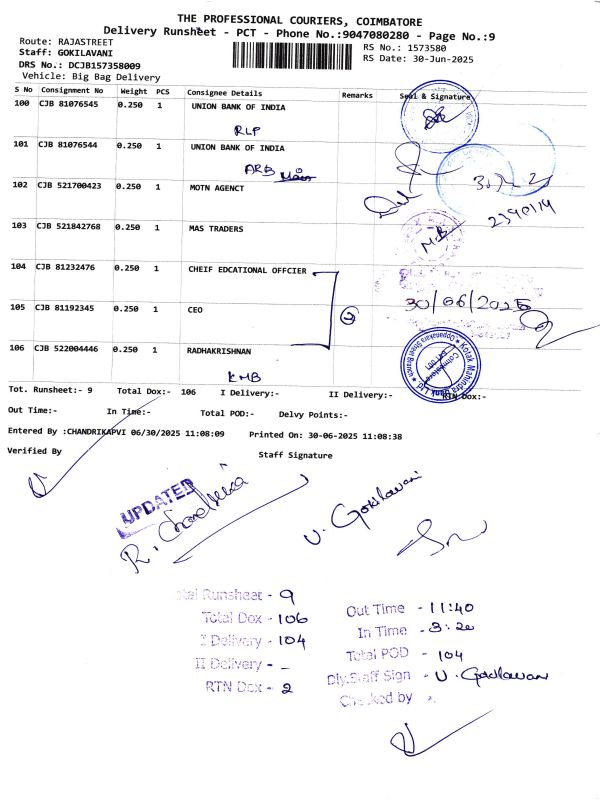 THE PROFESSIONAL COURIERS, COIMBATORE
Delivery Runsheet - PCT - Phone No.:9047080280 - Page No.:9
Route: RAJASTREET
RS No.: 1573580
Staff: GOKILAVANI
RS Date: 30-Jun-2025
DRS No.: DCJB157358009
Vehicle: Big Bag Delivery
S No Consignment No Weight PCS Consignee Details Remarks Seal & Signature
100 CJB 81076545 0.250 1 UNION BANK OF INDIA
RLP
101 CJB 81076544 0.250 1 UNION BANK OF INDIA
ARB Main
102 CJB 521700423 0.250 1 MOTN AGENCT
103 CJB 521842768 0.250 1 MAS TRADERS
M.B
104 CJB 81232476 0.250 1 CHEIF EDCATIONAL OFFCIER
30/06/2025
105 CJB 81192345 0.250 1 CEO
106 CJB 522004446 0.250 1 RADHAKRISHNAN
KMB
Kotak Mahindra Bank Ltd
Oppanakara Street Branch
Coimbatore
Tot. Runsheet:- 9 Total Dox:- 106 I Delivery:- II Delivery:- RTN Dox:-
Out Time:- In Time:- Total POD:- Delvy Points:-
Entered By :CHANDRIKAPVI 06/30/2025 11:08:09 Printed On: 30-06-2025 11:08:38
Verified By Staff Signature
UPDATED
R. Chandrika
V. Gokilavani
Total Runsheet - 9
Total Dox - 106
I Delivery - 104
II Delivery - -
RTN Dox - 2
Out Time - 11:40
In Time - 3:20
Total POD - 104
Dly.Staff Sign - V. Gokilavani
Checked by -